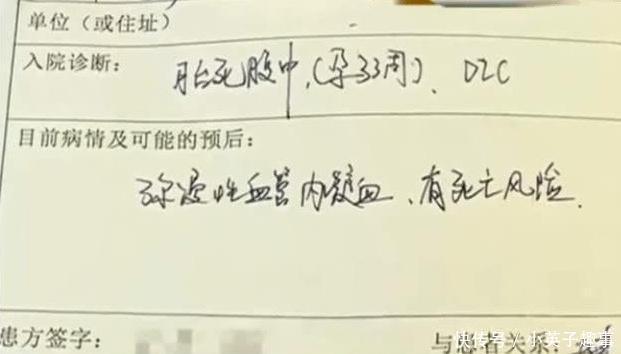 单位（或住址）
入院诊断：
胎死腹中，（孕33周）、DIC
目前病情及可能的预后：
弥漫性血管内凝血、有死亡风险.
患方签字：
与患者关系
快传号/小英子趣事